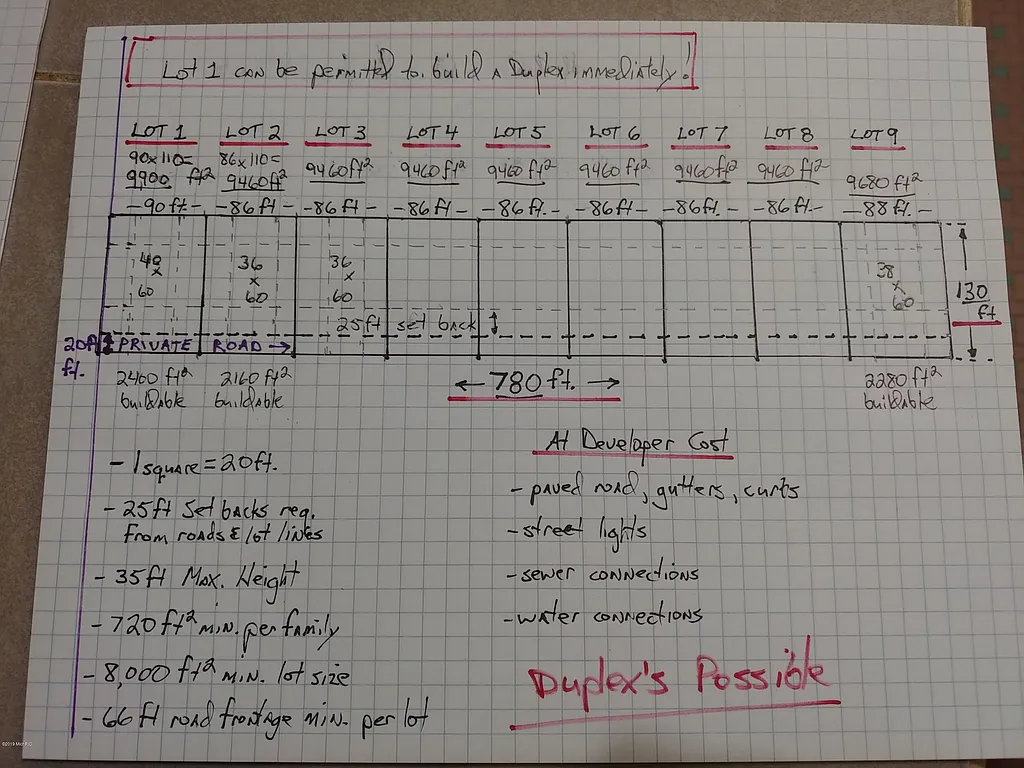 Lot 1 can be permitted to build a Duplex immediately!
LOT 1 LOT 2 LOT 3 LOT 4 LOT 5 LOT 6 LOT 7 LOT 8 LOT 9
90x110= 86x110=
9900 ft² 9460ft² 9460ft² 9460ft² 9460ft² 9460ft² 9460ft² 9460ft² 9680ft²
-90ft.- -86ft- -86ft- -86ft- -86ft.- -86ft- -86ft.- -86ft.- -88ft.-
x 60
36 x 60
36 x 60
38 x 60
130 ft
25ft set back
20ft ft.
PRIVATE ROAD →
2460 ft² buildable
2160 ft² buildable
← 780 ft. →
2280 ft² buildable
- 1 square = 20ft.
- 25ft Set backs req.
From roads & lot lines
- 35ft Max. Height
- 720 ft² min. per family
- 8,000 ft² min. lot size
- 66 ft road frontage min. per lot
At Developer Cost
- paved road, gutters, curbs
- street lights
- sewer connections
- water connections
Duplex's Possible